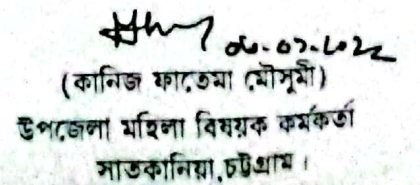 (কানিজ ফাতেমা মৌসুমী)
উপজেলা মহিলা বিষয়ক কর্মকর্তা
সাতকানিয়া,চট্টগ্রাম।